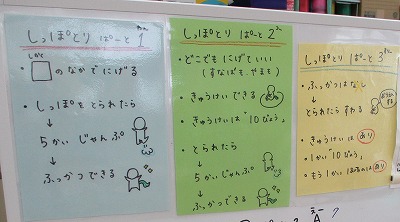 しっぽとり ぱーと1
しかく
・□のなかでにげる
・しっぽをとられたら
↓
5かい じゃんぷ
↓
ふっかつできる
しっぽとり ぱーと2
・どこでも にげていい
(すなばも、やまも)
・きゅうけいできる
・きゅうけいは"10びょう"
・とられたら
↓
5かい じゃんぷ
↓
ふっかつできる
しっぽとり ぱーと3
・ふっかつはなし
↓
とられたら すわる
・きゅうけいは あり
・1かい"10びょう"
・もう1かい